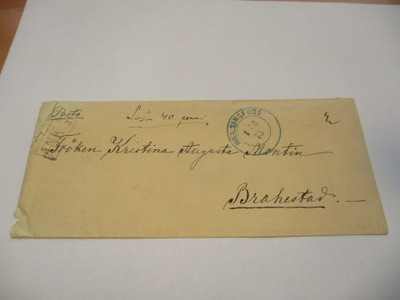 Porto
Lösen 40 penni.
HELSINGFORS
Fröken Kristina Augusta Montin
Brahestad.